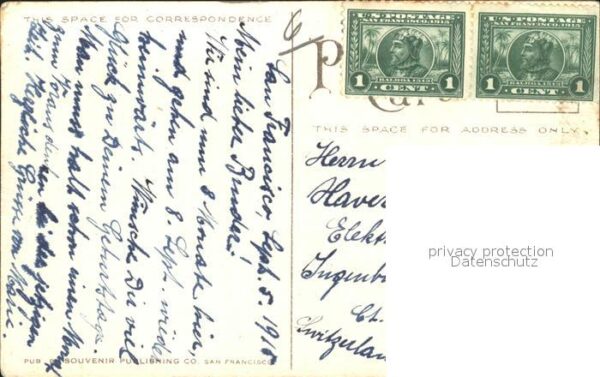 THIS SPACE FOR CORRESPONDENCE
San Francisco, Sept. 5. 1915
Mein lieber Bruder!
Wir sind nun 8 Monate hier,
und gehn am 8. Sept. wieder
heimwärts. Wünsche Dir viel
Glück zu Deinem Geburtstage.
Man muss halt schon einen Monat
zum Voraus denken bei der jetzigen
Zeit. Herzliche Grüsse von
Marie.
PUB. SOUVENIR PUBLISHING CO. SAN FRANCISCO
U.S. POSTAGE
SAN FRANCISCO 1915
BALBOA 1513
1 CENT 1
U.S. POSTAGE
SAN FRANCISCO 1915
BALBOA 1513
1 CENT 1
THIS SPACE FOR ADDRESS ONLY
Herrn
Haver
Elekt
Ingenb
Ct.
Switzerla
privacy protection
Datenschutz